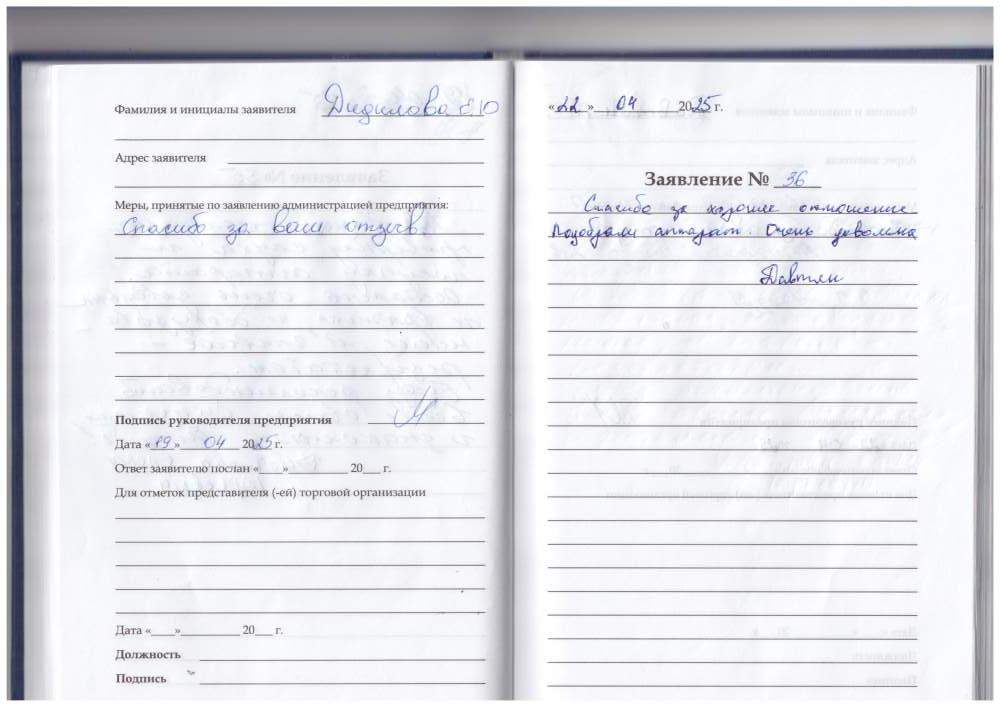 Фамилия и инициалы заявителя Дидилова Е.Ю
Адрес заявителя
Меры, принятые по заявлению администрацией предприятия:
Спасибо за ваш отзыв.
Подпись руководителя предприятия
Дата «19» 04 2025 г.
Ответ заявителю послан «___»__________ 20___ г.
Для отметок представителя (-ей) торговой организации
Дата «____»__________ 20___ г.
Должность
Подпись
«22» 04 2025 г.
Заявление № 36
Спасибо за хорошее отношение
Подобрали аппарат. Очень довольна
Давтян